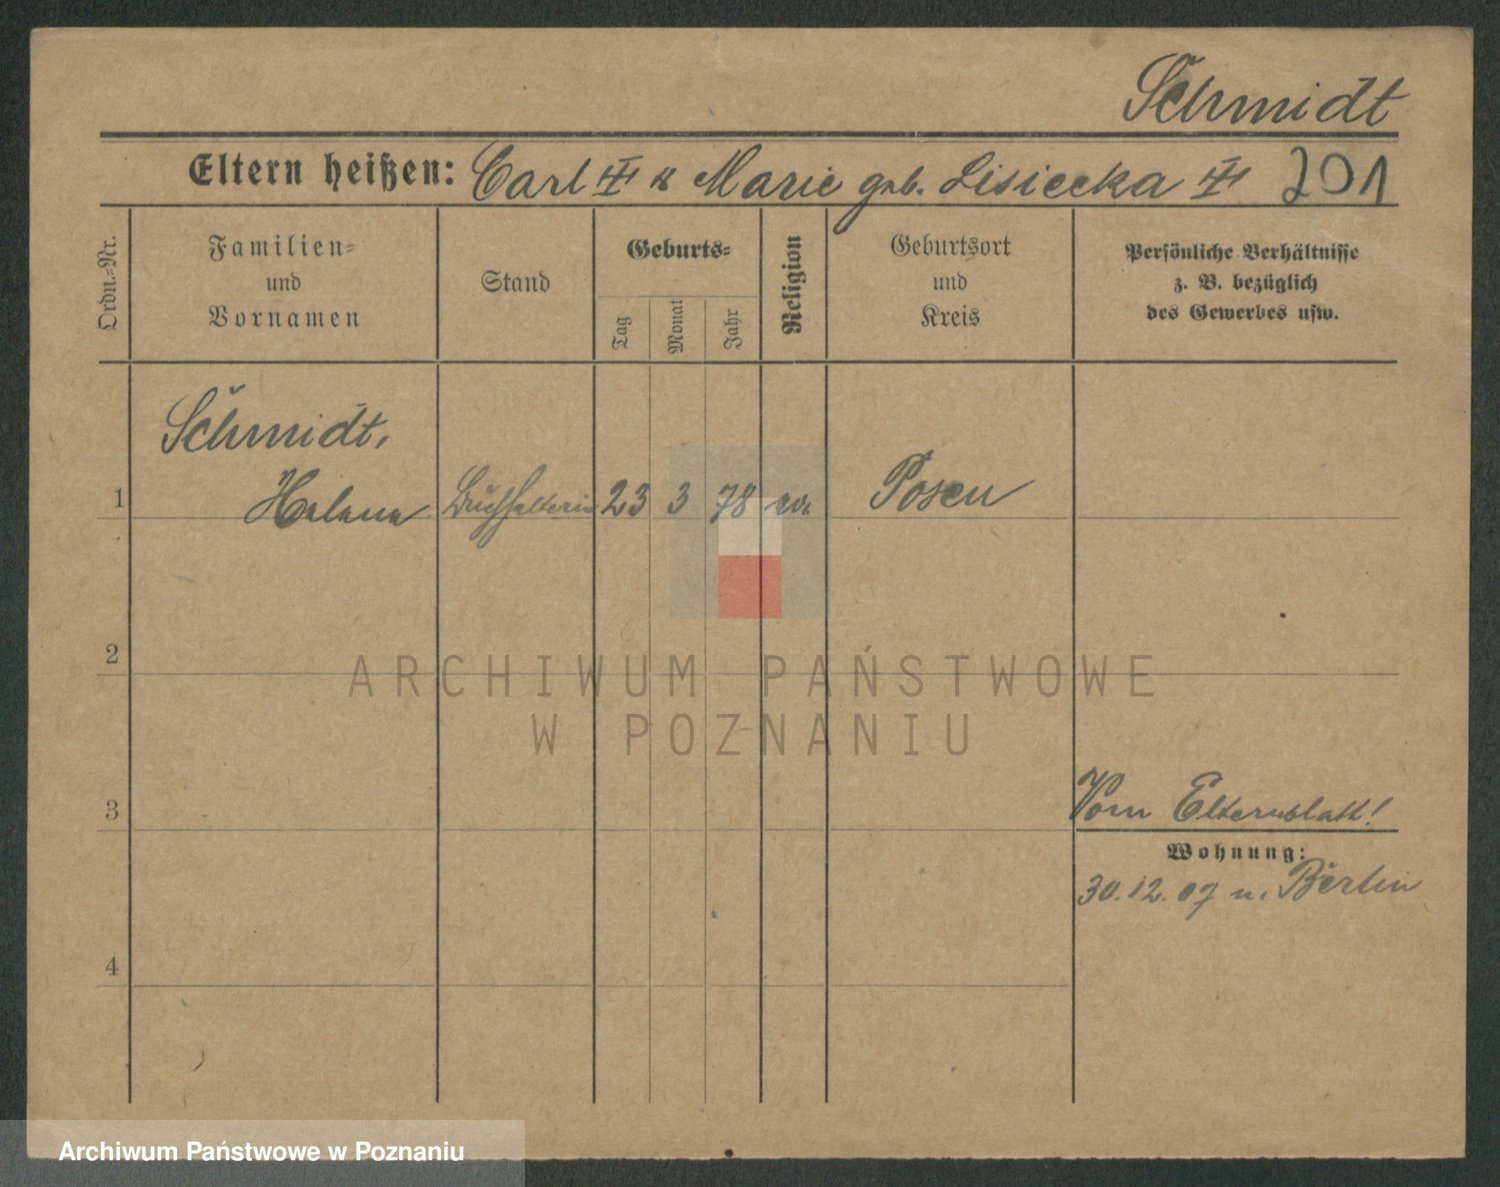 Schmidt
Eltern heißen: Carl u Marie geb. Lisiecka 201
Ordn.-Nr.
Familien-
und
Vornamen
Stand
Geburts-
Tag
Monat
Jahr
Religion
Geburtsort
und
Kreis
Persönliche Verhältnisse
z. B. bezüglich
des Gewerbes usw.
Schmidt,
1 Helene Buchhalterin 23 3 78 ev. Posen
2
ARCHIWUM PAŃSTWOWE
W POZNANIU
3 Vom Elternblatt!
Wohnung:
30.12.07 n. Berlin
4
Archiwum Państwowe w Poznaniu